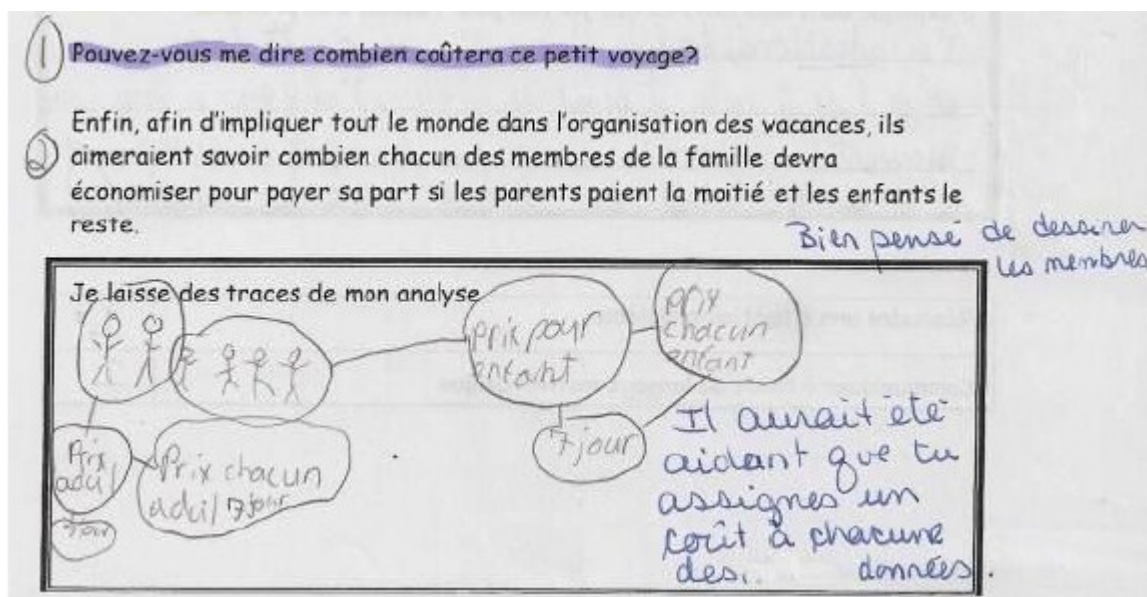 1 Pouvez-vous me dire combien coûtera ce petit voyage?
Enfin, afin d'impliquer tout le monde dans l'organisation des vacances, ils
2 aimeraient savoir combien chacun des membres de la famille devra
économiser pour payer sa part si les parents paient la moitié et les enfants le
reste.
Bien pensé de dessiner
les membres
Je laisse des traces de mon analyse
prix pour
enfant
prix
chacun
enfant
7 jour
Prix
adul
7 jour
Prix chacun
adul 7 jour
Il aurait été
aidant que tu
assignes un
coût à chacune
des.. données.